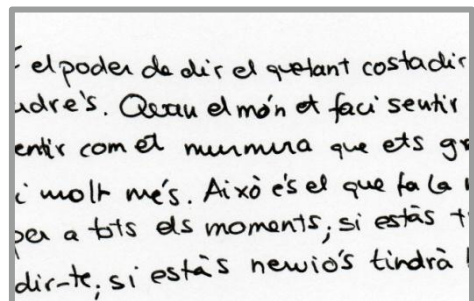 el poder de dir el que tant costa dir
Quan el món et faci sentir
com et murmura que ets
i molt més. Això és el que fa la
per a tots els moments; si estàs
dir-te; si estàs nerviós tindrà